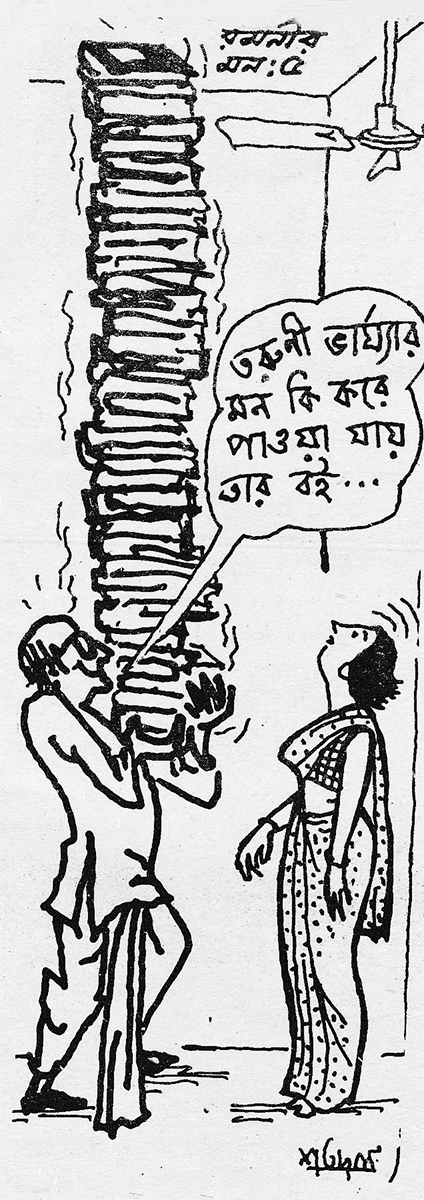 রমনীর
মন: ৫
তরুণী ভার্য্যার
মন কি করে
পাওয়া যায়
তার বই...